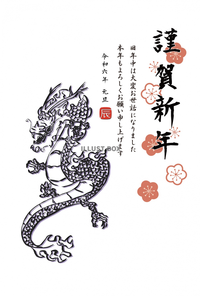 謹賀新年
旧年中は大変お世話になりました
本年もよろしくお願い申し上げます
令和六年 元旦
辰
ILLUST BOX